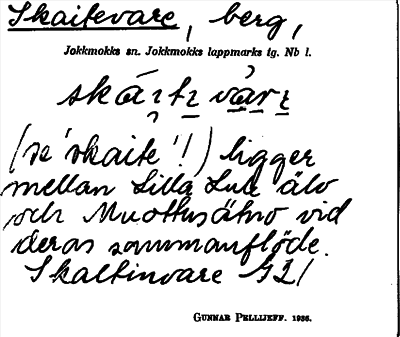 Skaitevare, berg,
Jokkmokks sn. Jokkmokks lappmarks tg. Nb l.
skáitɛ várɛ
(se 'skaite'!) ligger
mellan Lilla Lule älv
och Muottusätno vid
deras sammanflöde.
Skaltinvare G21
GUNNAR PELLIJEFF. 1936.